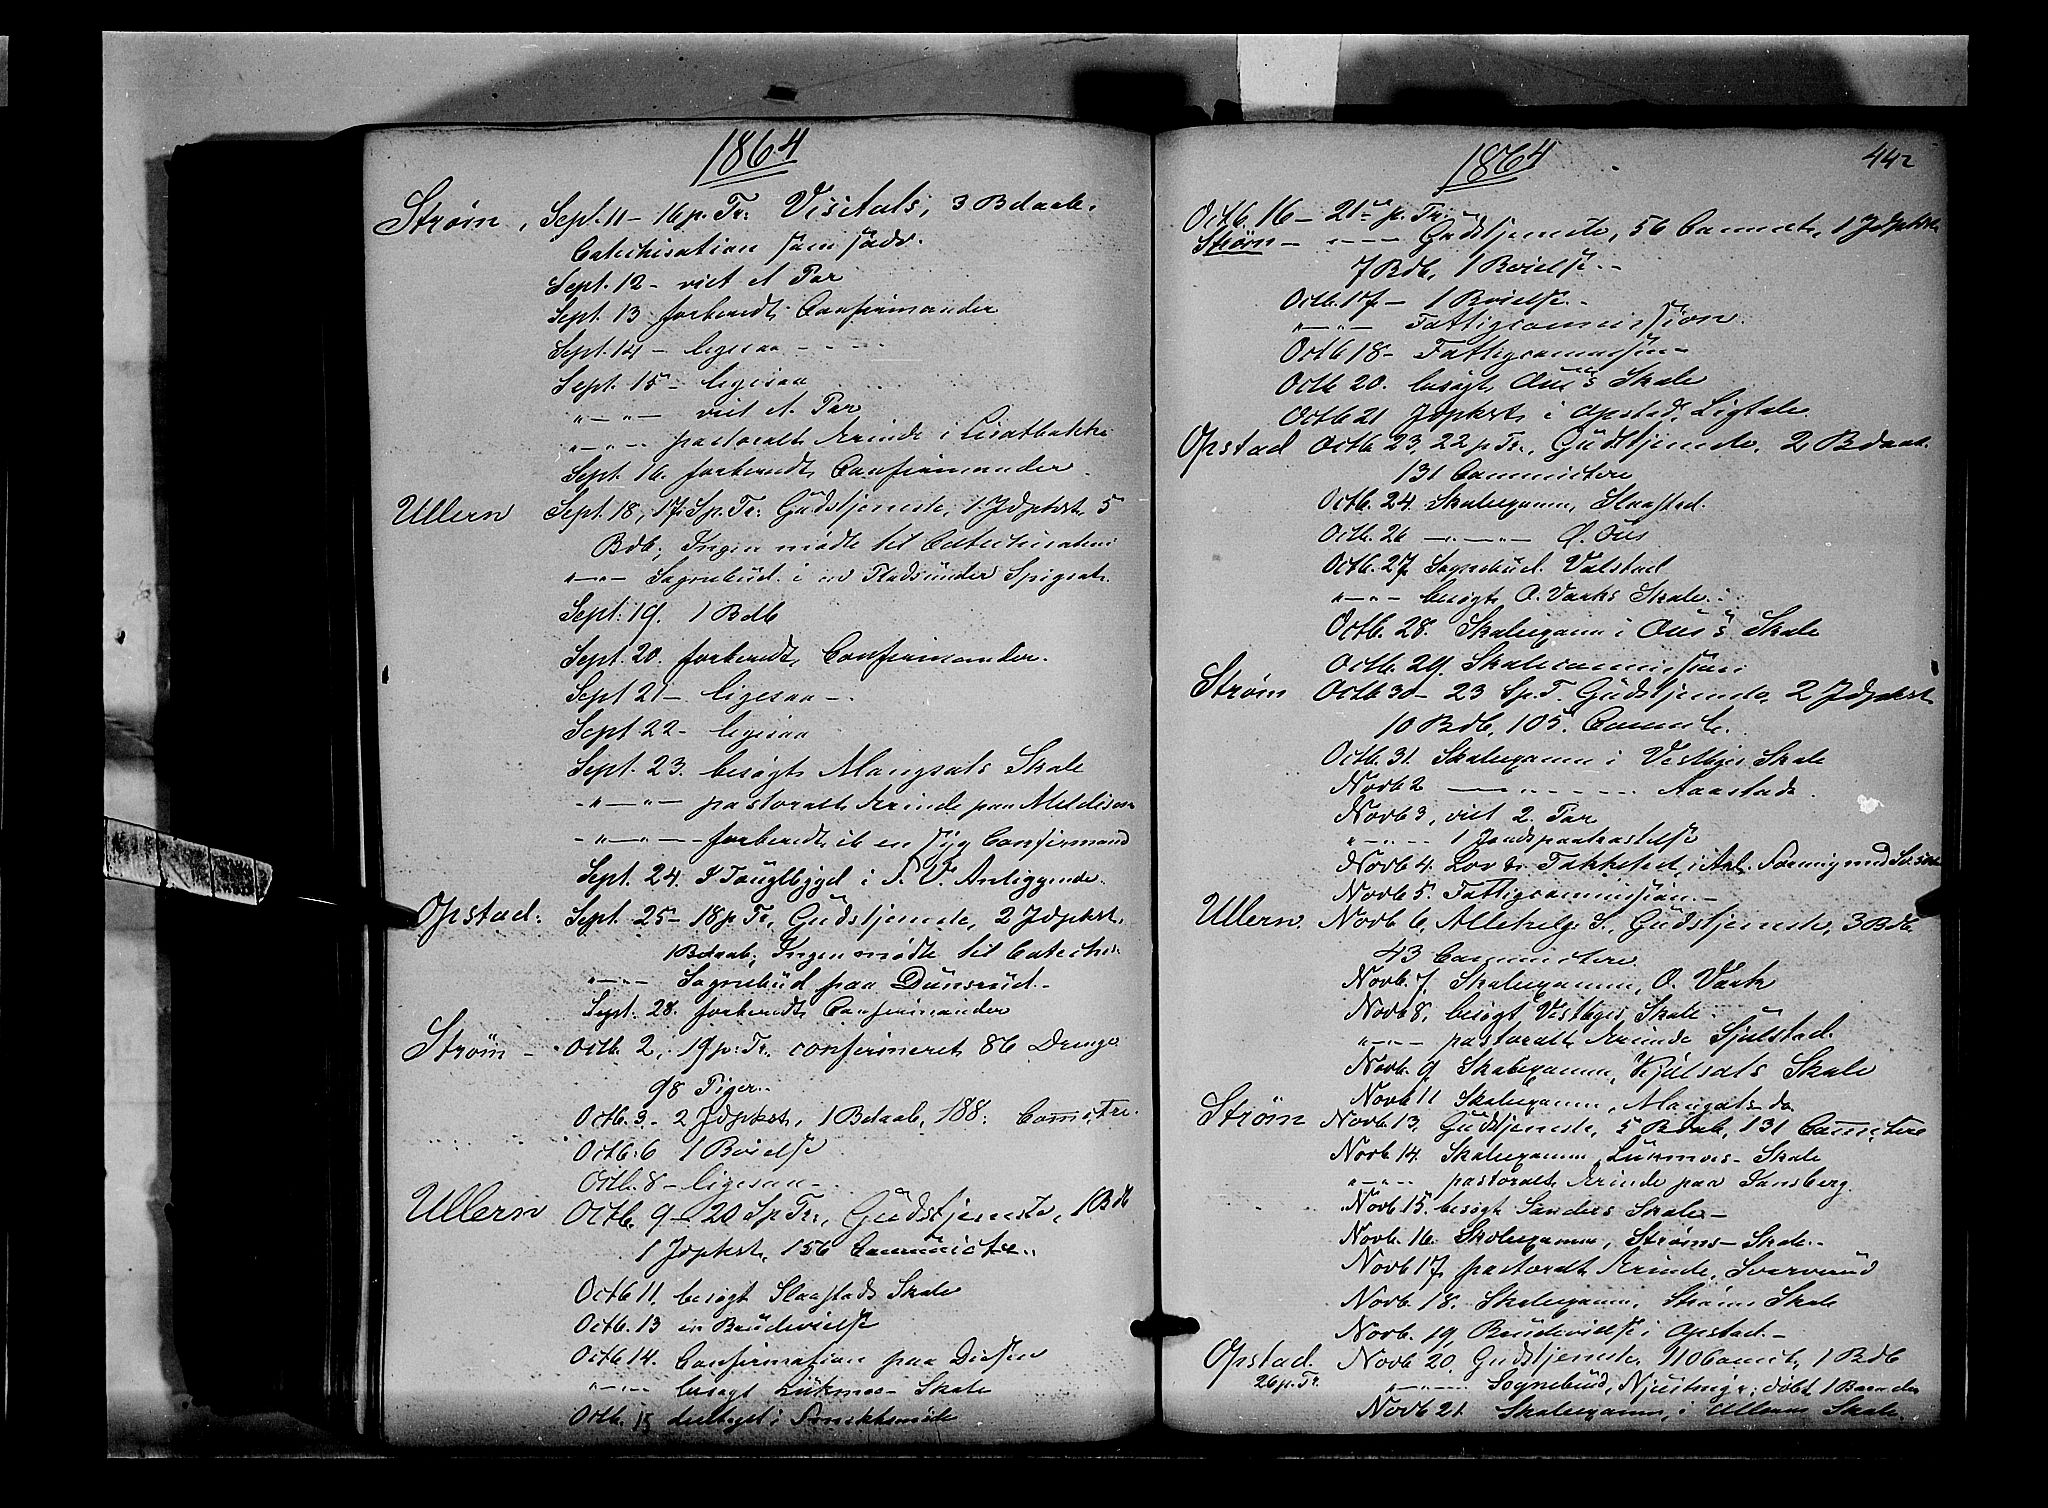 1864
Strøm, Sept. 11 - 16 p. Tr. Visitats, 3 Bdaab.
Catechisation som sædv.
Sept. 12 - viet et Par
Sept. 13 forberedt Confirmander
Sept. 14 - ligesaa - - - -
Sept. 15 - ligesaa
" - " - viet et Par
" - " - pastoralt Ærinde i
Sept. 16. forberedt Confirmander.
Ullern Sept. 18, 17. S. p. Tr. Gudstjeneste, 1 Jdpkst. 5
Bdb; Ingen mødte til Catechisation
" - " - Sognebud i
Sept. 19. 1 Bdb
Sept. 20. forberedt Confirmander.
Sept 21 - ligesaa -
Sept 22 - ligesaa
Sept. 23. besøgt Mangsats Skole
- " - " - pastoralt Ærinde paa
- " - " - forberedt en syg Confirmand
Sept. 24. I S. V. Anliggende.
Opstad: Sept. 25 - 18 p. Tr. Gudstjeneste, 2 Jdpkst.
1 Bdaab; Ingen mødte til Catechis:
" - " - Sognebud paa Dunserud -
Sept. 28. forberedt Confirmander
Strøm - Octb. 2, 19 p: Tr. confirmeret 86 Drenge
98 Piger.
Octb. 3. - 2 Jdpkst, 1 Bdaab, 188. Comitre.
Octb. 6 1 Bvielse
Octb. 8 - ligesaa -
Ullern Octb. 9 - 20 S p Tr., Gudstjeneste, 1 Bdb
1 Jdpkst, 156 Communictre..
Octb 11, besøgt Slaastads Skole
Octb. 13 en Brudevielse
Octb 14. Confirmation paa Diesen
" - " - besøgt Lukmoes Skole
Octb. 15 deeltaget i
1864
442
Octb. 16 - 21de p. Tr.
Strøm - " - " - Gudstjeneste, 56 Commct., 1 Jdpkst
7 Bdb, 1 Bvielse -
Octb. 17 - 1 Bvielse -
" - " - Fattigcommission.
Octb 18 - Fattigcommission -
Octb 20. besøgt Ous's Skole
Octb 21 Jdpkst. i Opstad, Ligtale.
Opstad Octb. 23, 22 p Tr., Gudstjeneste, 2 Bdaab.
131 Communictere
Octb. 24 Skoleexamen, Slaastad.
Octb. 26 - " - " - Ø. Ous
Octb. 27 Sognebud Valstad
" - " - besøgt O. Vaaks Skole.
Octb. 28. Skoleexamen i Ous's Skole
Octb. 29. Skolecommission
Strøm Octb 30 - 23 S p. T. Gudstjeneste, 2 Jdpkst
10 Bdb, 105. Commctr.
Octb. 31. Skoleexamen i Skole
Novb 2 - " - - - - Aaastads.
Novb 3, viet 2 Par
" - " - 1 Jordspaakastelse
Novb 4.
Novb 5. Fattigcommission. -
Ullern. Novb 6, Allehelg: S., Gudstjeneste, 3 Bdb
43 Communictere.
Novb. 7. Skoleexamen, O. Vaak
Novb 8, besøgt Skole -
" - " - pastoralt Ærinde Sjulstad.
Novb. 9 Skoleexamen, Kjølsats Skole
Novb 11 Skoleexamen, Mangsats do
Strøm Novb. 13, Gudstjeneste, 5 Bdaab, 131 Comctere
Novb 14. Skoleexamen, Lukmoes - Skole
" - " - pastoralt Ærinde paa
Novb 15. besøgt Sanders Skole -
Novb. 16. Skoleexamen, Strøms - Skole. -
Novb 17, pastoralt Ærinde, Sværverud
Novb. 18. Skoleexamen, Strøms Skole
Novb. 19, Brudevielse i Opstad. -
Opstad. Novb 20, Gudstjeneste, 110 Comct., 1 Bdb
26 p. Tr. " - " - Sognebud, døbt 1 Barn der
Novb 21 Skoleexamen, i Ullerns Skole.